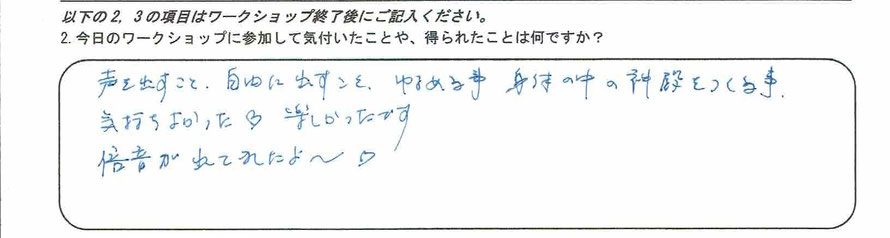 以下の2，3の項目はワークショップ終了後にご記入ください。
2. 今日のワークショップに参加して気付いたことや、得られたことは何ですか？
声を出すこと、自由に出すこと、ゆるめる事 身体の中の神殿をつくる事、
気持ちよかった♡ 楽しかったです
倍音が れてれたよ〜♡